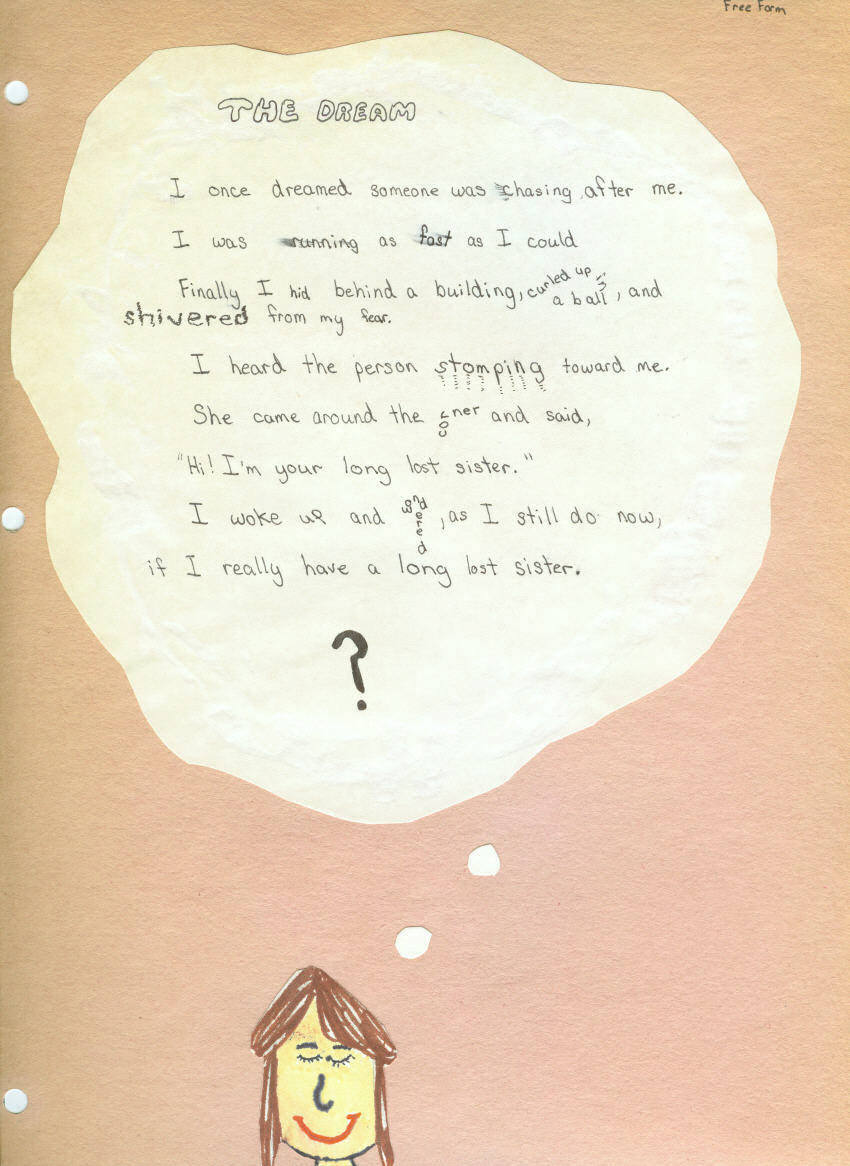 Free Form
THE DREAM
I once dreamed someone was chasing after me.
I was running as fast as I could
Finally I hid behind a building, curled up in a ball, and
shivered from my fear.
I heard the person stomping toward me.
She came around the corner and said,
"Hi! I'm your long lost sister."
I woke up and wondered, as I still do now,
if I really have a long lost sister.
?